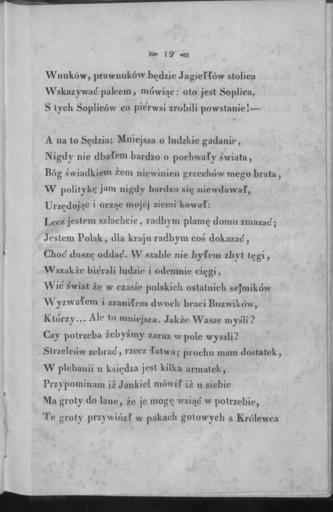 12
Wnuków, prawnuków będzie Jagiełłów stolica
Wskazywać palcem, mówiąc: oto jest Soplica,
S tych Sopliców co piérwsi zrobili powstanie!—
A na to Sędzia: Mniejsza o ludzkie gadanie,
Nigdy nie dbałem bardzo o pochwały świata,
Bóg świadkiem żem niewinien grzechów mego brata,
W politykę jam nigdy bardzo się niewdawał,
Urzędując i orząc mojéj ziemi kawał:
Lecz jestem szlachcic, radbym plamę domu zmazać;
Jestem Polak, dla kraju radbym coś dokazać,
Choć duszę oddać. W szable nie byłem zbyt tęgi,
Wszakże biérali ludzie i odemnie cięgi,
Wié świat że w czasie polskich ostatnich sejmików
Wyzwałem i zraniłem dwoch braci Buzwików,
Którzy... Ale to mniejsza. Jakże Wasze myśli?
Czy potrzeba żebyśmy zaraz w pole wyszli?
Strzelców zebrać, rzecz łatwa; prochu mam dostatek,
W plebanii u księdza jest kilka armatek,
Przypominam iż Jankiel mówił iż u siebie
Ma groty do lanc, że je mogę wziąć w potrzebie,
Te groty przywiózł w pakach gotowych s Królewca